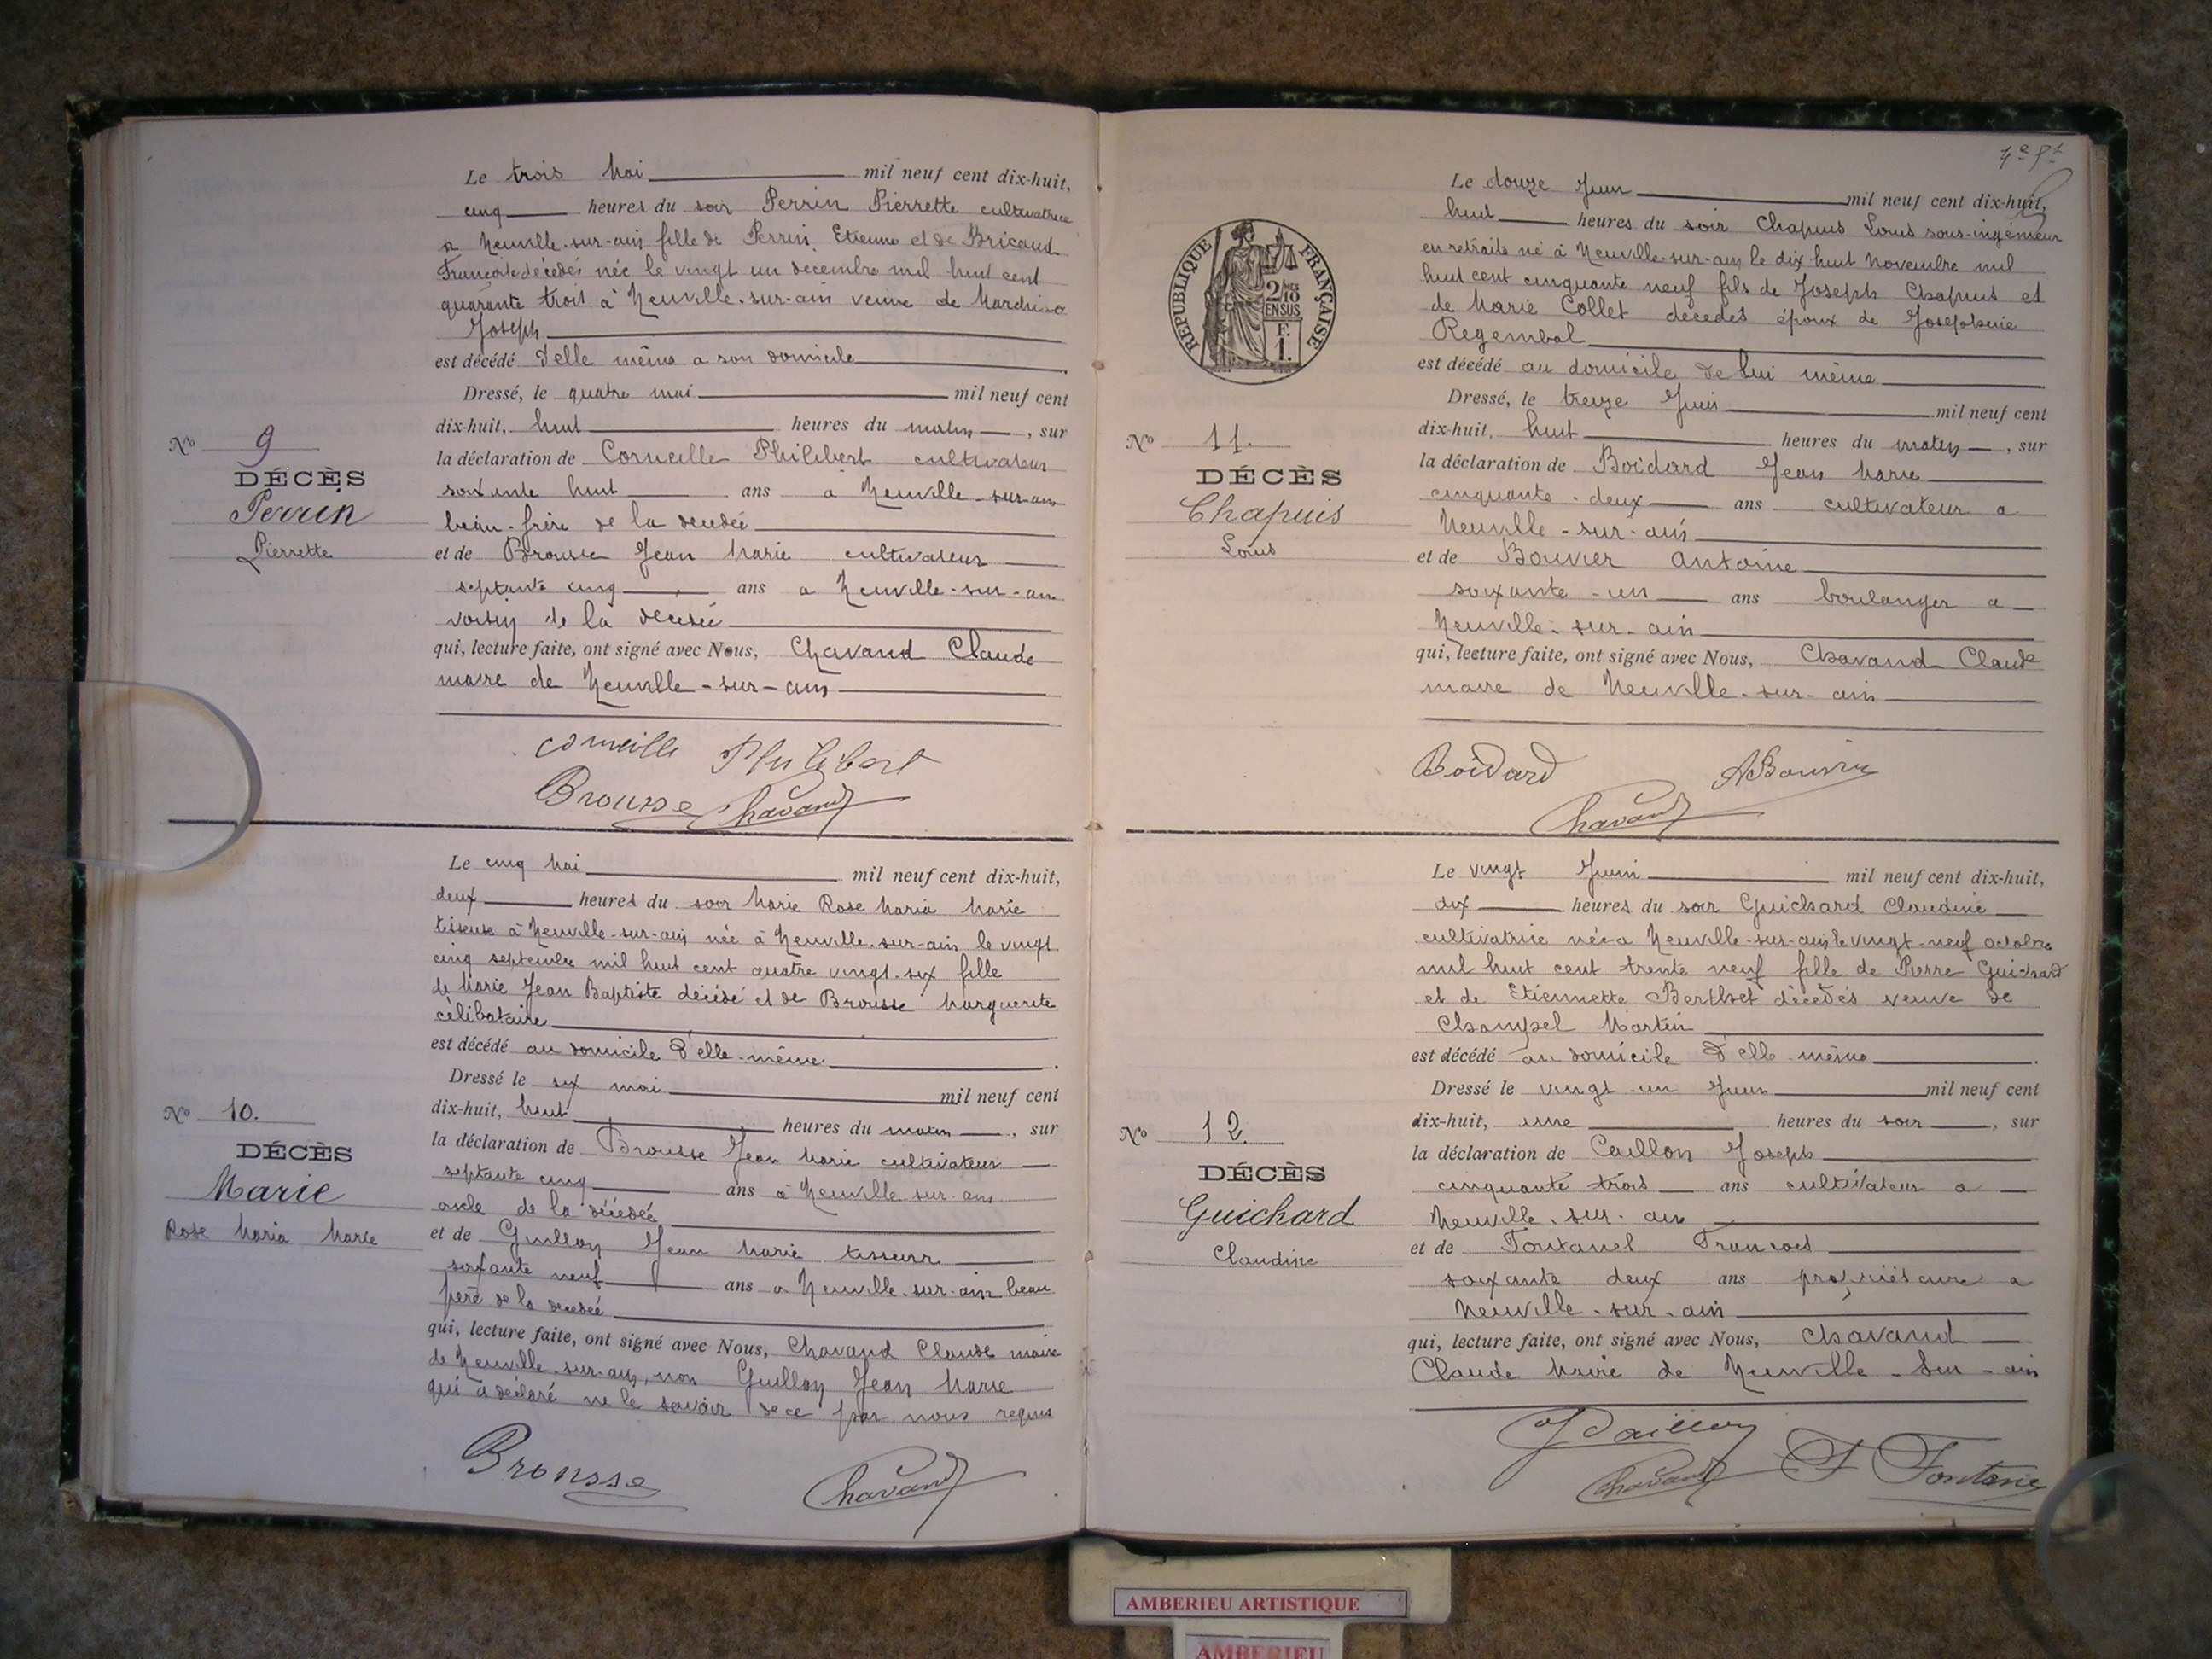 Le trois Mai mil neuf cent dix-huit,
cinq heures du soir Perrin Pierrette cultivatrice
a Neuville-sur-ain fille de Perrin Etienne et de Bricaud
Françoise décédés née le vingt un decembre mil huit cent
quarante trois à Neuville-sur-ain veuve de
Joseph
est décédé d'elle même a son domicile
Dressé, le quatre mai mil neuf cent
dix-huit, huit heures du matin, sur
la déclaration de Corneille Philibert cultivateur
soixante huit ans a Neuville-sur-ain
beau-frère de la décédée
et de Brousse Jean Marie cultivateur
septante cinq ans a Neuville-sur-ain
voisin de la décédée
qui, lecture faite, ont signé avec Nous, Chavand Claude
maire de Neuville-sur-ain
No 9
DÉCÈS
Perrin
Pierrette
Corneille Philibert
Brousse Chavand
Le cinq Mai mil neuf cent dix-huit,
deux heures du soir Marie Rose Maria Marie
tiseuse à Neuville-sur-ain née à Neuville-sur-ain le vingt
cinq septembre mil huit cent quatre vingt-six fille
de Marie Jean Baptiste décédé et de Brousse Marguerite
célibataire
est décédé au domicile d'elle-même
Dressé le six mai mil neuf cent
dix-huit, huit heures du matin, sur
la déclaration de Brousse Jean Marie cultivateur
septante cinq ans à Neuville-sur-ain
oncle de la décédée
et de Guillon Jean Marie tisseur
soixante neuf ans a Neuville-sur-ain beau
père de la décédée
qui, lecture faite, ont signé avec Nous, Chavand Claude maire
de Neuville-sur-ain, non Guillon Jean Marie
qui a déclaré ne le savoir de ce par nous requis
No 10.
DÉCÈS
Marie
Rose Maria Marie
Brousse Chavand
RÉPUBLIQUE FRANÇAISE
2/10
EN SUS
F.
1.
Le douze Juin mil neuf cent dix-huit,
huit heures du soir Chapuis Louis sous-ingénieur
en retraite né à Neuville-sur-ain le dix huit Novembre mil
huit cent cinquante neuf fils de Joseph Chapuis et
de Marie Collet décédés époux de Josephine
Regembal
est décédé au domicile de lui même
Dressé, le treize Juin mil neuf cent
dix-huit, huit heures du matin, sur
la déclaration de Boidard Jean Marie
cinquante-deux ans cultivateur a
Neuville-sur-ain
et de Bouvier Antoine
soixante-un ans boulanger a
Neuville-sur-ain
qui, lecture faite, ont signé avec Nous, Chavand Claude
maire de Neuville-sur-ain
No 11.
DÉCÈS
Chapuis
Louis
Boidard ABouvier
Chavand
Le vingt Juin mil neuf cent dix-huit,
dix heures du soir Guichard Claudine
cultivatrice née a Neuville-sur-ain le vingt-neuf octobre
mil huit cent trente neuf fille de Pierre Guichard
et de Etiennette Berthet décédés veuve de
Champel Martin
est décédé au domicile d'elle même
Dressé le vingt-un Juin mil neuf cent
dix-huit, une heures du soir, sur
la déclaration de Caillon Joseph
cinquante trois ans cultivateur a
Neuville-sur-ain
et de Fontanel François
soixante deux ans propriétaire a
Neuville-sur-ain
qui, lecture faite, ont signé avec Nous, Chavand
Claude Maire de Neuville-sur-ain
No 12.
DÉCÈS
Guichard
Claudine
Chavand
AMBERIEU ARTISTIQUE
AMBERIEU